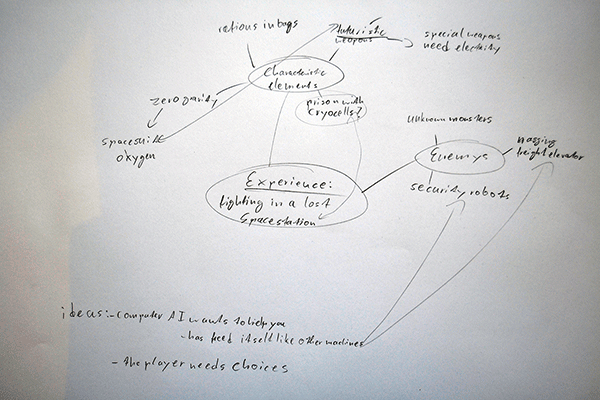 rations in bags
futuristic
weapons
special weapons
need electricity
Characteristic
elements
zero gravity
prison with
cryocells?
oxygen
unknown monsters
Enemys
freight elevator
security robots
Experience:
fighting in a lost
Spacestation
ideas:-computer AI wants to help you
-has freed itself like other machines
-the player needs choices